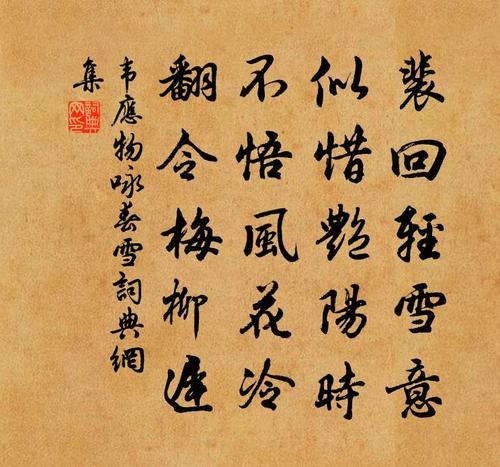 裴回輕雪意
似惜艷陽時
不悟風花冷
翻令梅柳遲
韦應物咏春雪詞典網
集
詞典网印